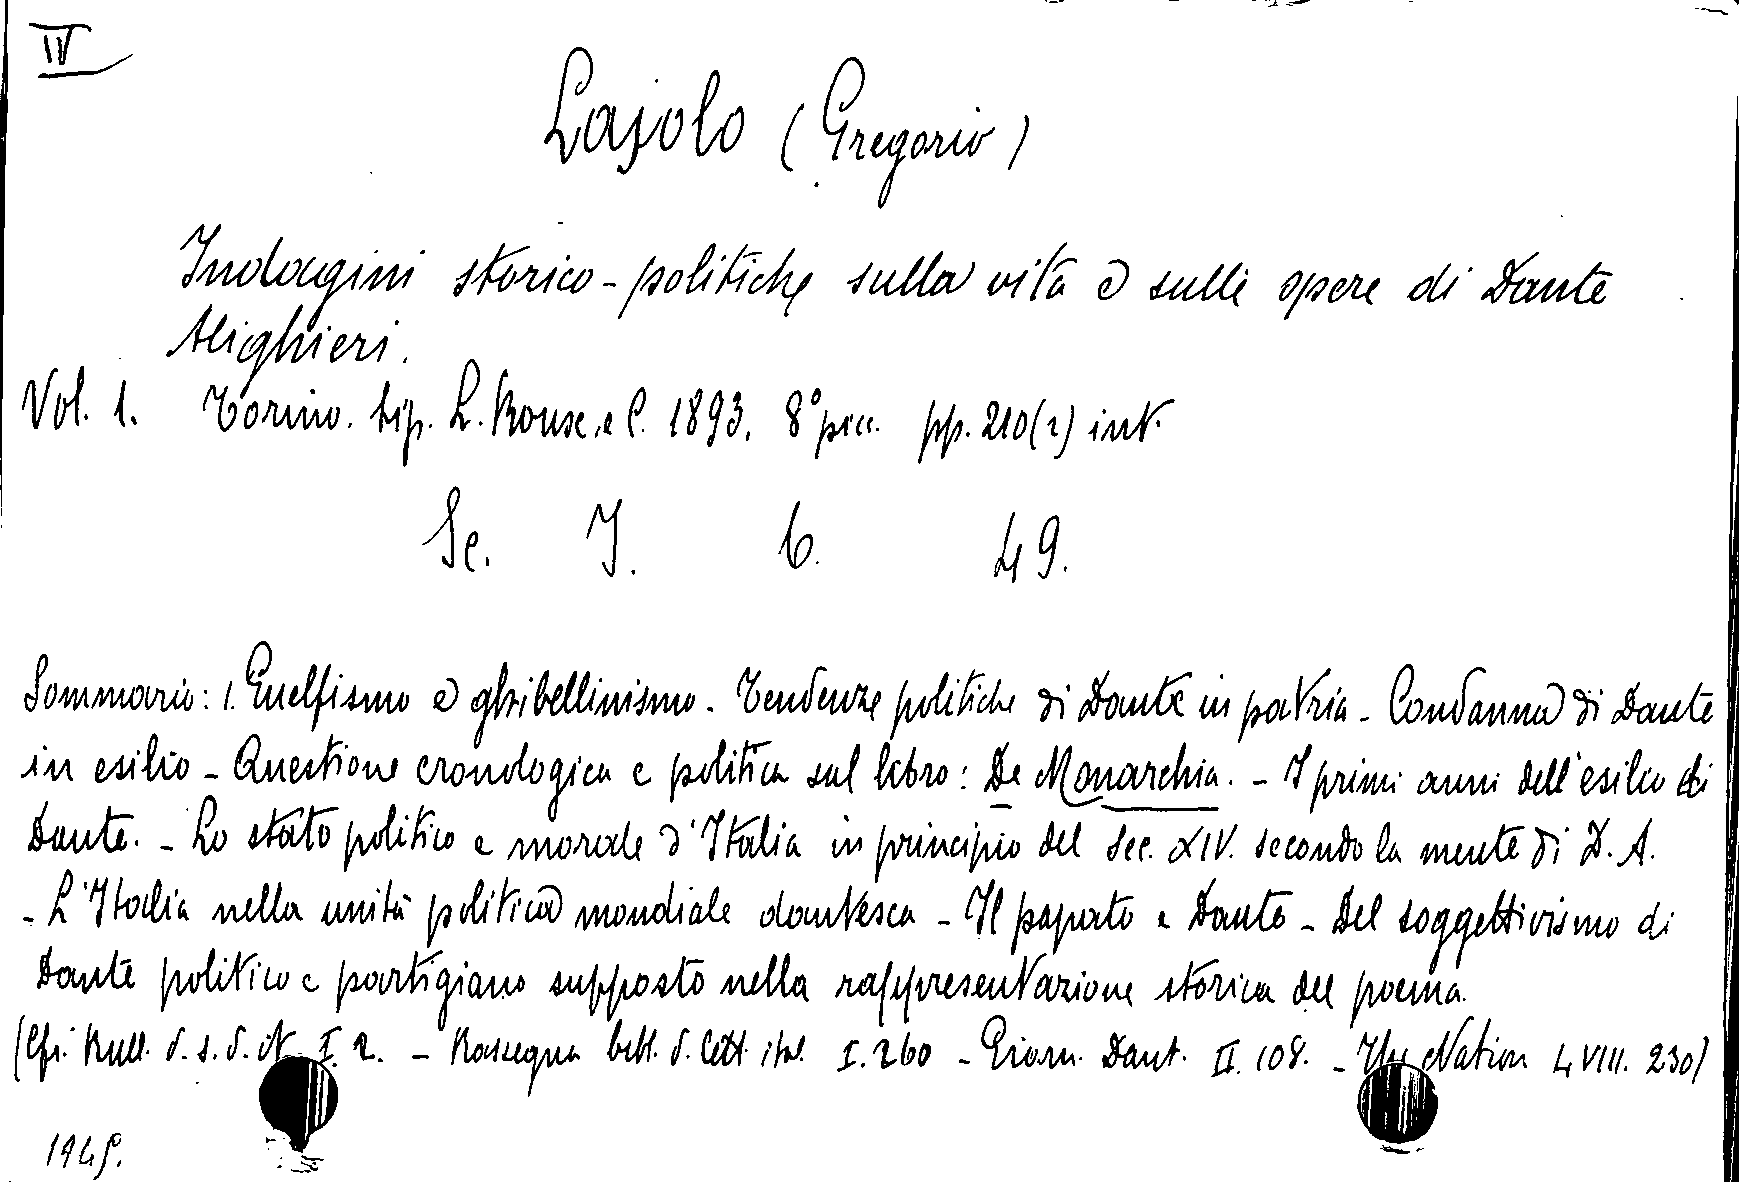 IV
Lajolo (Gregorio)
Indagini storico-politiche sulla vita e sulle opere di Dante
Alighieri.
Vol. 1. Torino. tip. L. Roux e C. 1893. 8° picc. pp. 210(2) int.
Sc. I. 6. 49.
Sommario: 1. Guelfismo e ghibellinismo - Tendenze politiche di Dante in patria - Condanna di Dante
in esilio - Questione cronologica e politica sul libro: De Monarchia. - I primi anni dell'esilio di
Dante. - Lo stato politico e morale d'Italia in principio del sec. XIV. secondo la mente di D. A.
- L'Italia nella unità politica mondiale dantesca - Il papato e Dante - Del soggettivismo di
Dante politico e partigiano supposto nella rappresentazione storica del poema.
(Cfr. Bull. d. s. d. It. I. 2. - Rassegna bibl. d. lett. ital. I. 260 - Giorn. Dant. II. 108. - The Nation LVIII. 230)